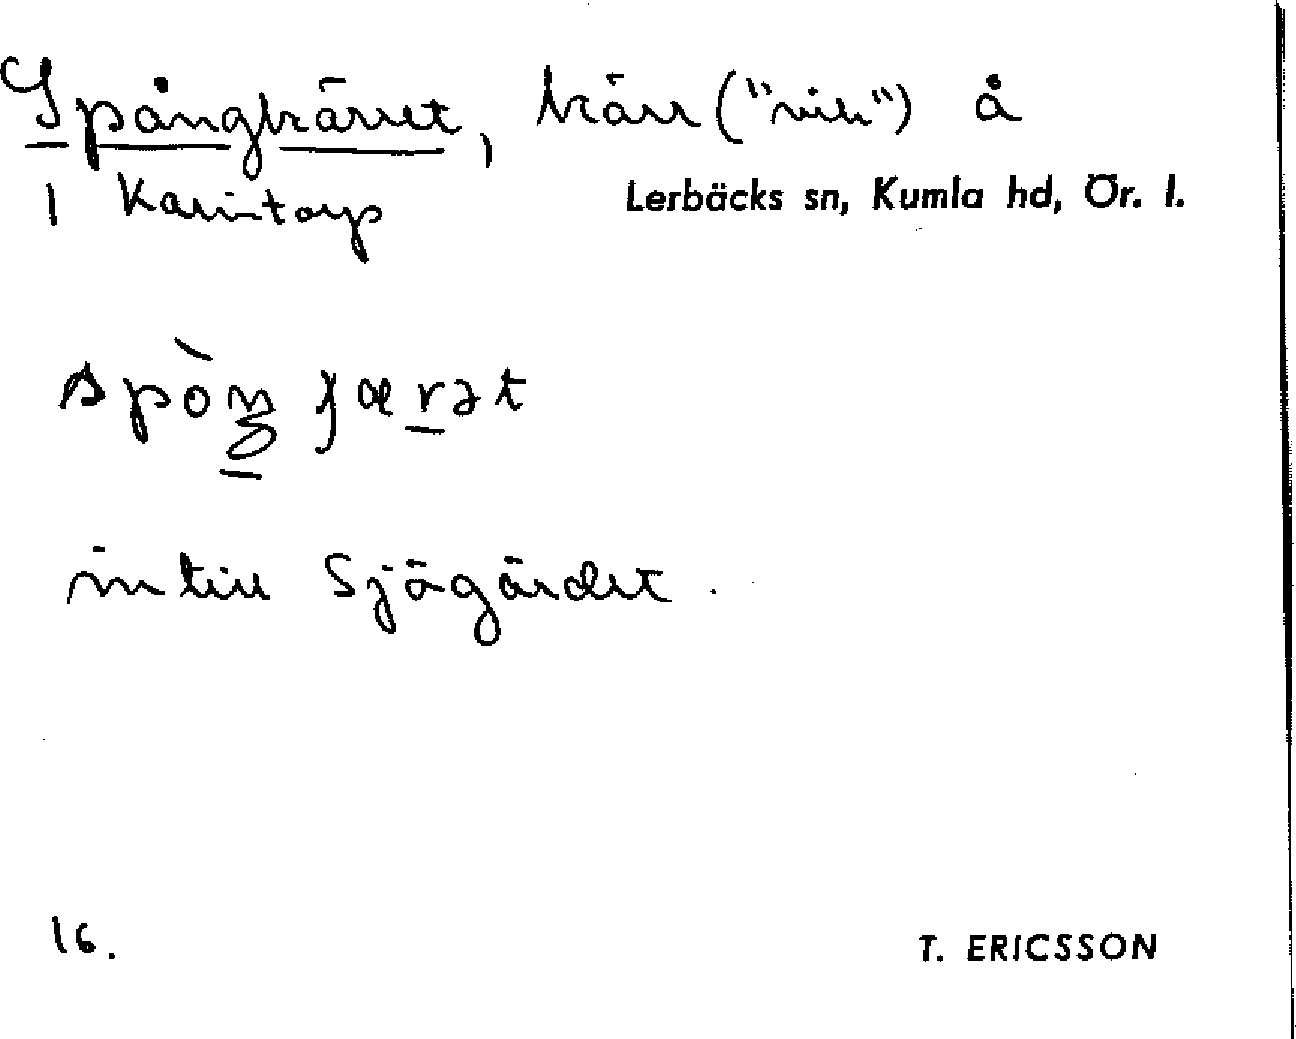 Spångkärret, kärr ("vik") å
1 Karintorp
Lerbäcks sn, Kumla hd, Ör. l.
intill Sjögärdet.
16.
T. ERICSSON